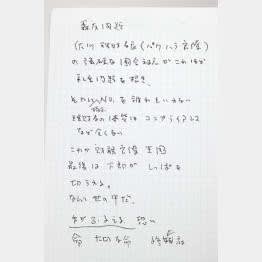 森友問題
佐川理財局長(パワハラ官僚)
の強硬な国会対応がこれほど
社会問題を招き、
それにNOを誰れもいわない
理財局の体質はコンプライアンス
など全くない
これが財務官僚王国
最後は下部がしっぽを
切られる。
なんて世の中だ、
手がふるえる、恐い
命 大切な命